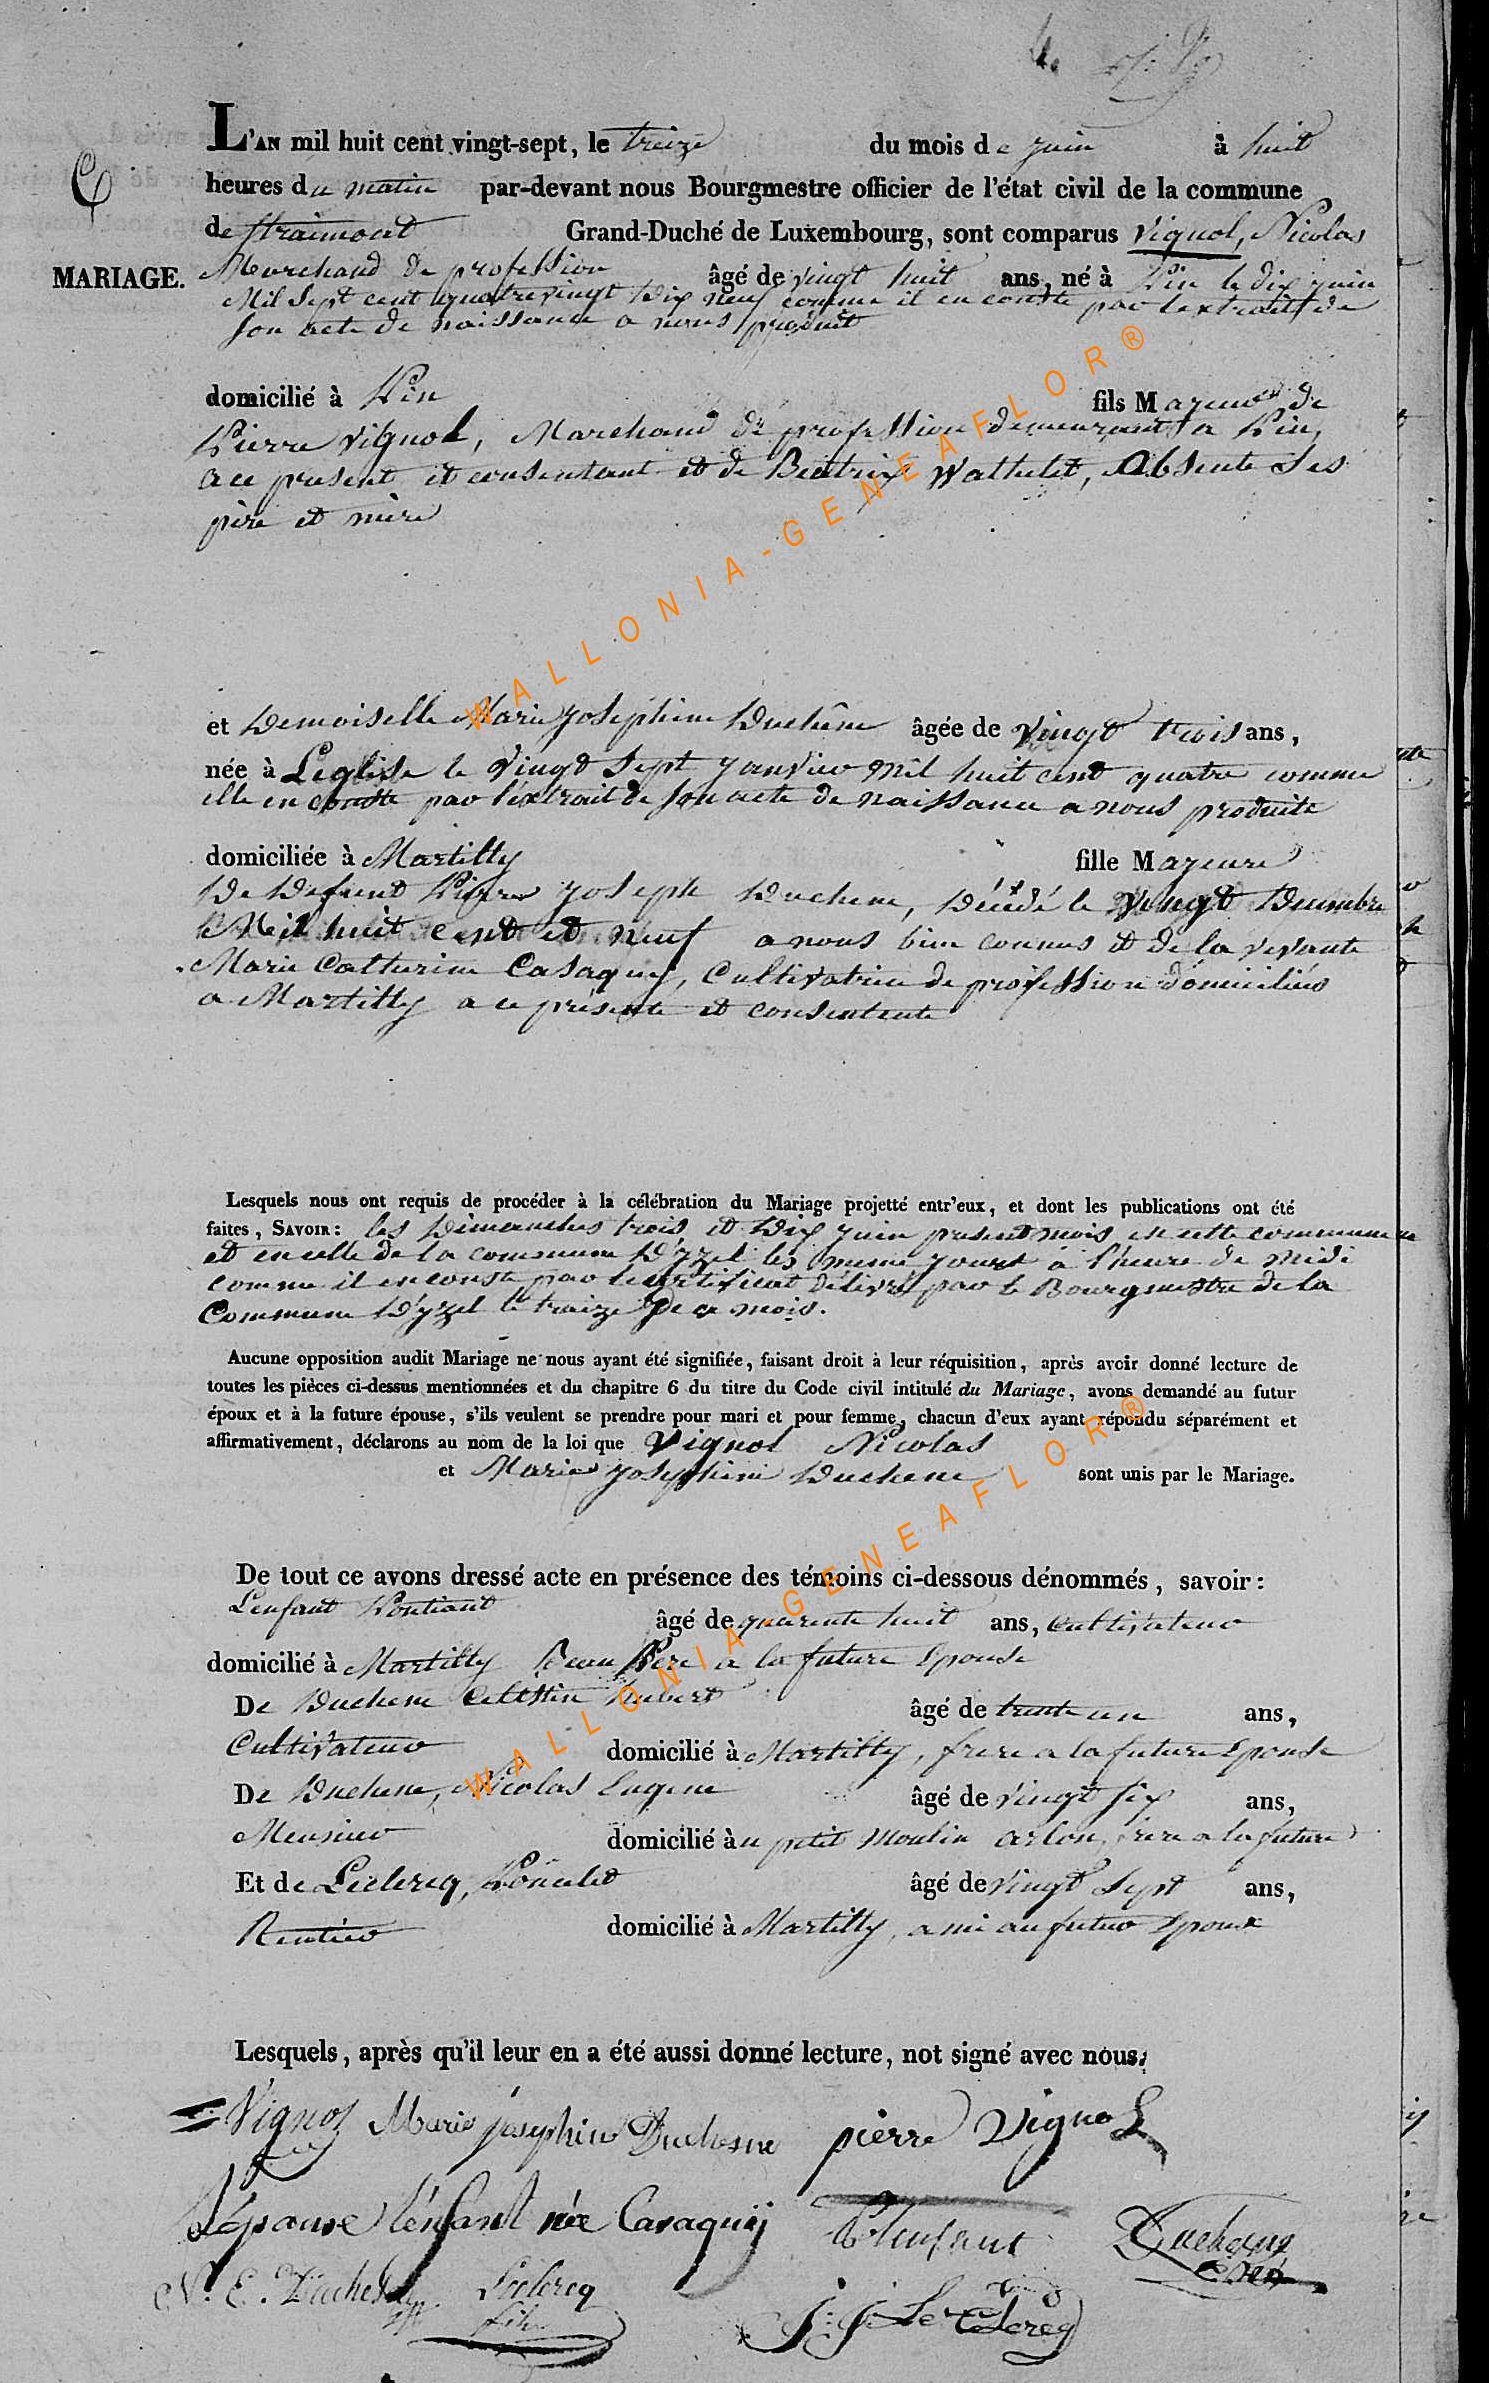 L'AN mil huit cent vingt-sept, le treize du mois de juin à huit
heures du matin par-devant nous Bourgmestre officier de l'état civil de la commune
de Straimont Grand-Duché de Luxembourg, sont comparus Vignol, Nicolas
MARIAGE. Marchand de profession âgé de vingt huit ans, né à Pin le dix juin
Mil Sept cent quatrevingt Dix neuf comme il en conste par l'extrait de
son acte de naissance a nous produit
domicilié à Pin fils Majeur de
Pierre Vignol, Marchand de profession demeurant a Pin,
a ce present et consentant et de Beatrix Wathelet, Absente Ses
père et mère
et Demoiselle Marie Josephine Duchêne âgée de vingt trois ans,
née à Leglise le vingt Sept janvier Mil huit cent quatre comme
elle en conste par l'extrait de son acte de naissance a nous produite
domiciliée à Martilly fille Majeure
De Defunt Pierre Joseph Duchene, Décédé le vingt Decembre
Mil huit cent et neuf a nous bien connus et de la vivante
Marie Catherine Casaquy, Cultivatrice de profession domiciliés
a Martilly a ce présente et consentente
Lesquels nous ont requis de procéder à la célébration du Mariage projetté entr'eux, et dont les publications ont été
faites, SAVOIR: les Dimanches trois et Dix juin present mois en cette commune
et en celle de la commune D'yzel les meme jours à l'heure de Midi
comme il en conste par le certificat délivré par le Bourgmestre de la
Commune D'yzel le traize De ce mois.
Aucune opposition audit Mariage ne nous ayant été signifiée, faisant droit à leur réquisition, après avoir donné lecture de
toutes les pièces ci-dessus mentionnées et du chapitre 6 du titre du Code civil intitulé du Mariage, avons demandé au futur
époux et à la future épouse, s'ils veulent se prendre pour mari et pour femme, chacun d'eux ayant répondu séparément et
affirmativement, déclarons au nom de la loi que Vignol Nicolas
et Marie Josephine Duchene sont unis par le Mariage.
De tout ce avons dressé acte en présence des témoins ci-dessous dénommés, savoir:
Lenfant Pontiant âgé de quarente huit ans, Cultivateur
domicilié à Martilly Beau Père a la future Epouse
De Duchene Celestin Hubert âgé de trente un ans,
Cultivateur domicilié à Martilly, frere a la future Epouse
De Duchene, Nicolas Eugene âgé de vingt six ans,
Meunier domicilié au petit Moulin arlon, frere a la future
Et de Leclercq, Poncelet âgé de vingt Sept ans,
Rentier domicilié à Martilly, ami au futur Epoux
Lesquels, après qu'il leur en a été aussi donné lecture, not signé avec nous.
Vignol Marie joséphine Duchesne pierre Vignol
L'épouse lénfant née Casaquy P Lenfant Duchesne
N. E. Duchesne Leclercq
fils J: J: Leclercq
WALLONIA-GENEAFLOR®
WALLONIA-GENEAFLOR®